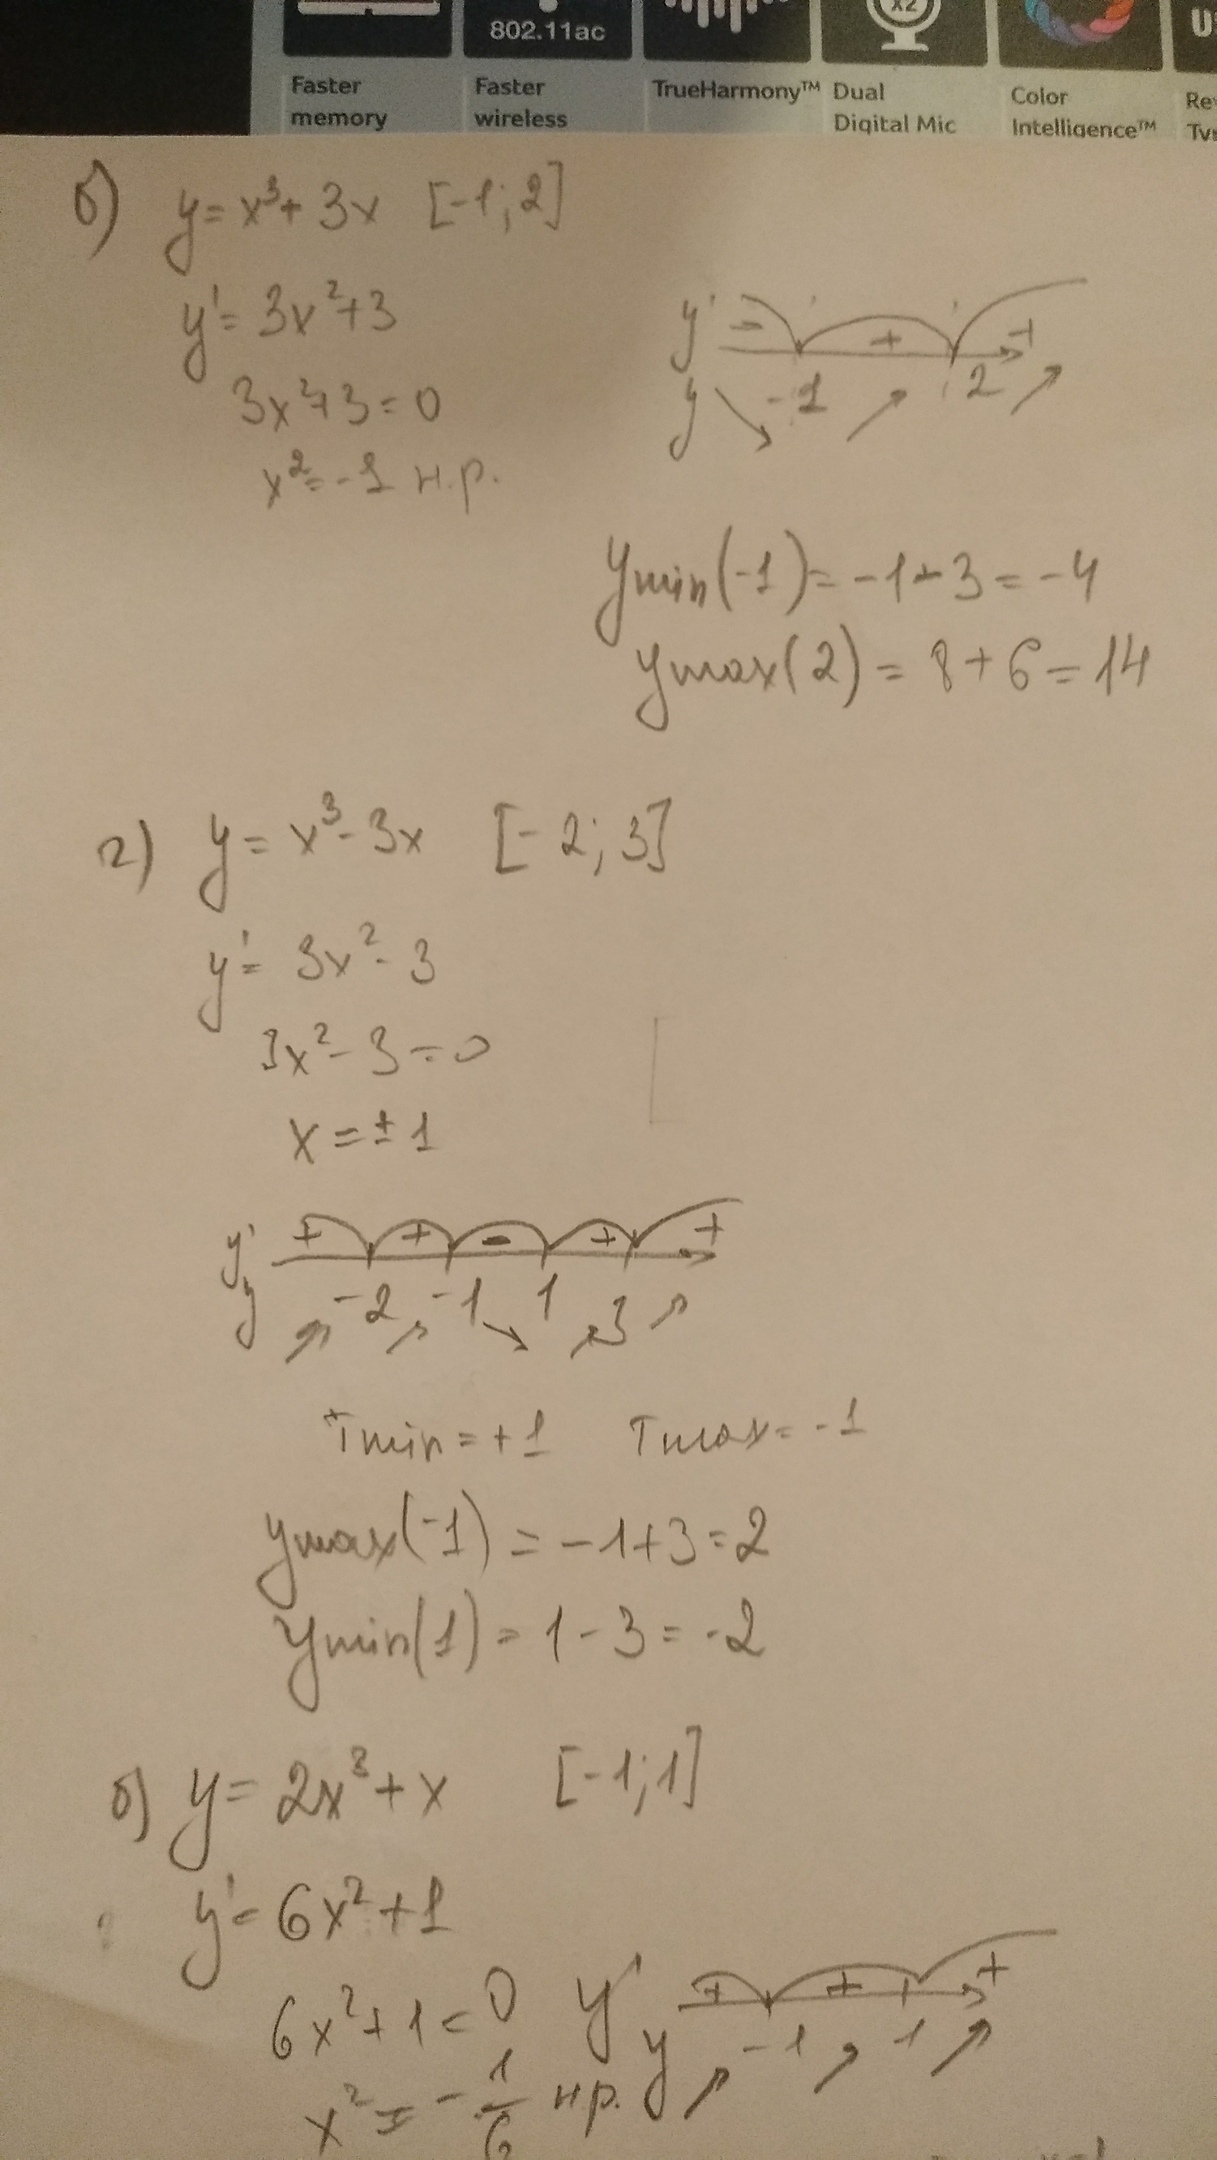 x2
802.11ac
Faster memory
Faster wireless
TrueHarmony™
Dual Digital Mic
Color Intelligence™
б) y = x³ + 3x [-1; 2]
y' = 3x² + 3
3x² + 3 = 0
x² = -1 н.р.
y' - + +
y -1 2
ymin(-1) = -1 - 3 = -4
ymax(2) = 8 + 6 = 14
г) y = x³ - 3x [-2; 3]
y' = 3x² - 3
3x² - 3 = 0
x = ± 1
y' + + - + +
y -2 -1 1 3
Tmin = +1 Tmax = -1
ymax(-1) = -1 + 3 = 2
ymin(1) = 1 - 3 = -2
б) y = 2x³ + x [-1; 1]
y' = 6x² + 1
6x² + 1 = 0
y' + + +
y -1 1
x² = - 1/6 н.р.